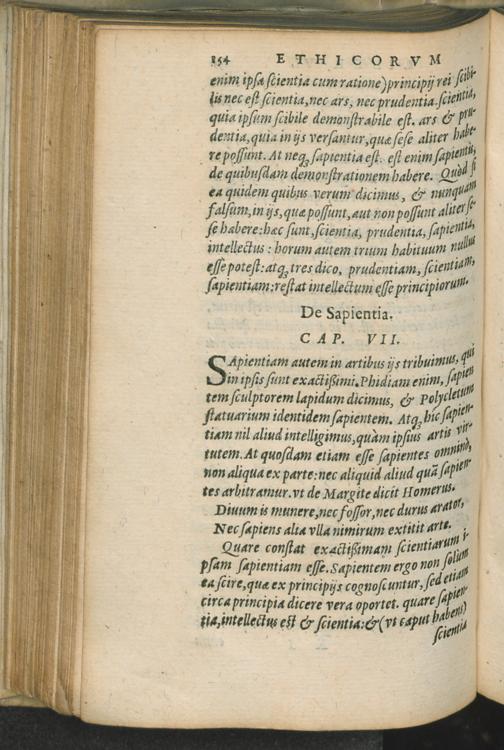 154 ETHICORVM
enim ipsa scientia cum ratione) principij rei scibi-
lis nec est scientia, nec ars, nec prudentia. scientia,
quia ipsum scibile demonstrabile est. ars & pru-
dentia, quia in ijs versantur, quæ sese aliter habe-
re possunt. At neq; sapientia est. est enim sapientis,
de quibusdam demonstrationem habere. Quòd si
ea quidem quibus verum dicimus, & nunquam
falsum, in ijs, quæ possunt, aut non possunt aliter se-
se habere: hæc sunt, scientia, prudentia, sapientia,
intellectus: horum autem trium habituum nullus
esse potest: atq; tres dico, prudentiam, scientiam,
sapientiam: restat intellectum esse principiorum.
De Sapientia.
CAP. VII.
SApientiam autem in artibus ijs tribuimus, qui
in ipsis sunt exactißimi. Phidiam enim, sapien
tem sculptorem lapidum dicimus, & Polycletum
statuarium identidem sapientem. Atq; hic sapien-
tiam nil aliud intelligimus, quàm ipsius artis vir-
tutem. At quosdam etiam esse sapientes omnino,
non aliqua ex parte: nec aliquid aliud quã sapien-
tes arbitramur. vt de Margite dicit Homerus.
Diuum is munere, nec fossor, nec durus arator,
Nec sapiens alia vlla nimirum extitit arte.
Quare constat exactißimam scientiarum i-
psam sapientiam esse. Sapientem ergo non solùm
ea scire, quæ ex principijs cognoscuntur, sed etiam
circa principia dicere vera oportet. quare sapien-
tia, intellectus est & scientia: & (vt caput habens)
scientia